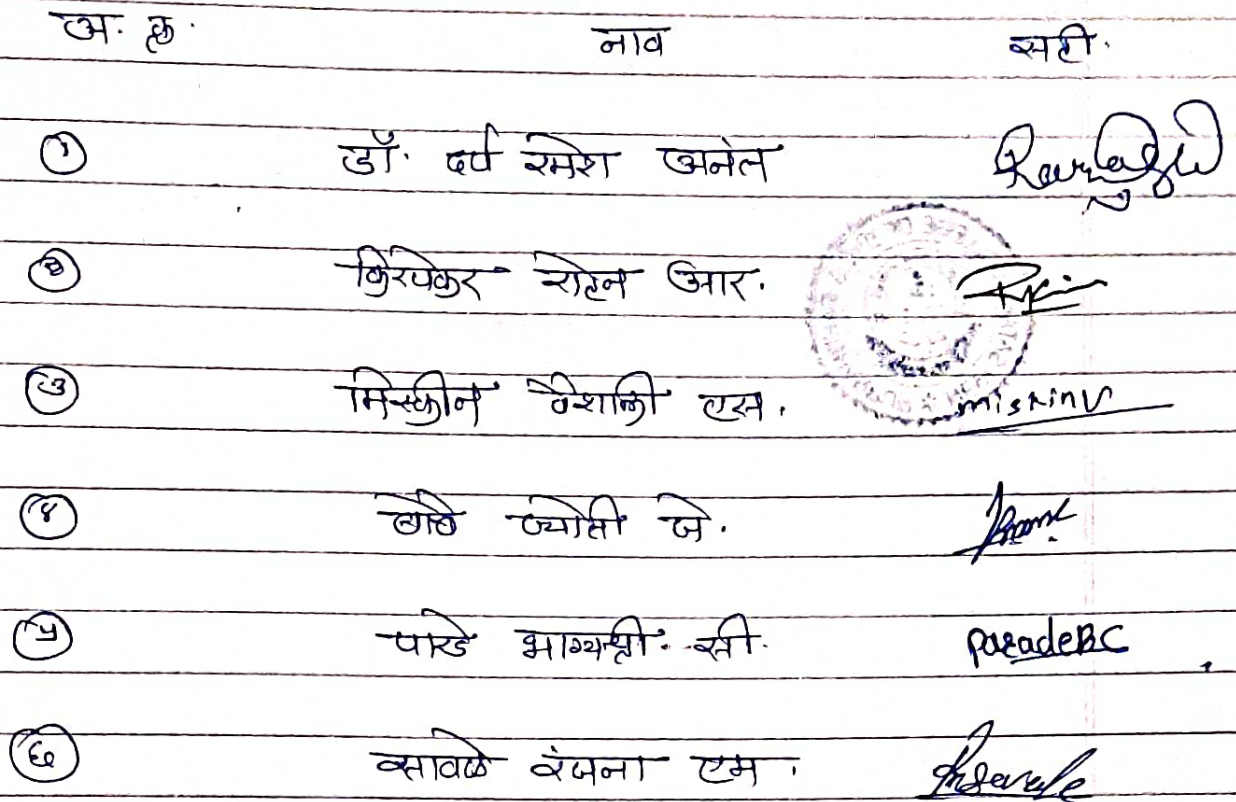 अ. क्र. नाव सही.
① डॉ. दर्प रमेश अनंत
② किरपेकर रोहन आर.
③ मिस्कीन वैशाली एस. miskinv
④ बोठे ज्योती जे.
⑤ पारडे भाग्यश्री. सी. paradeBC
⑥ सावळे रंजना एम.